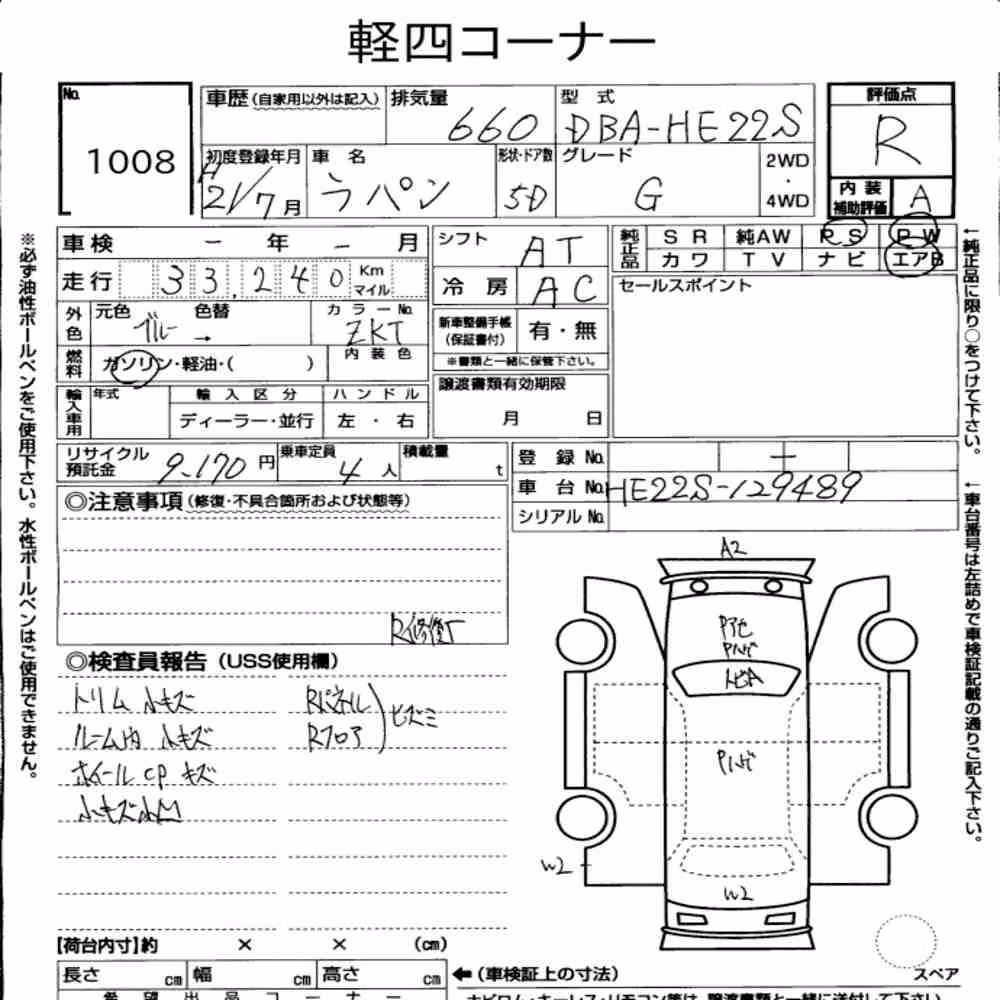 軽四コーナー
No. 1008
車歴(自家用以外は記入) 排気量 660 型式 DBA-HE22S 評価点 R
初度登録年月 H21/7月 車名 ラパン 形状・ドア数 5D グレード G 2WD・4WD 内装補助評価 A
車検 ー 年 ー 月 シフト AT 純正品 SR 純AW PS PW
カワ TV ナビ エアB
走行 33,240 Km マイル 冷房 AC セールスポイント
外色 元色 ブルー 色替 → カラーNo. ZKT 新車整備手帳(保証書付) 有・無
燃料 ガソリン・軽油・( ) 内装色 ※書類と一緒に保管下さい。
輸入車用 年式 輸入区分 ハンドル 譲渡書類有効期限
ディーラー・並行 左・右 月 日
リサイクル預託金 9,170円 乗車定員 4人 積載量 t 登録No. ー
車台No. HE22S-129489
シリアルNo.
◎注意事項(修復・不具合箇所および状態等)
R修復
◎検査員報告(USS使用欄)
トリム小キズ Rパネル
ルーム内小キズ Rフロア ヒズミ
ホイールCPキズ
小キズ小凹
A2
Pハゲ
トビA
Pハゲ
W2
W2
【荷台内寸】約 × × (cm)
長さ cm 幅 cm 高さ cm ←(車検証上の寸法) スペア
希望出品コーナー
※必ず油性ボールペンをご使用下さい。水性ボールペンはご使用できません。
←純正品に限り○をつけて下さい。
←車台番号は左詰めで車検証記載の通りご記入下さい。